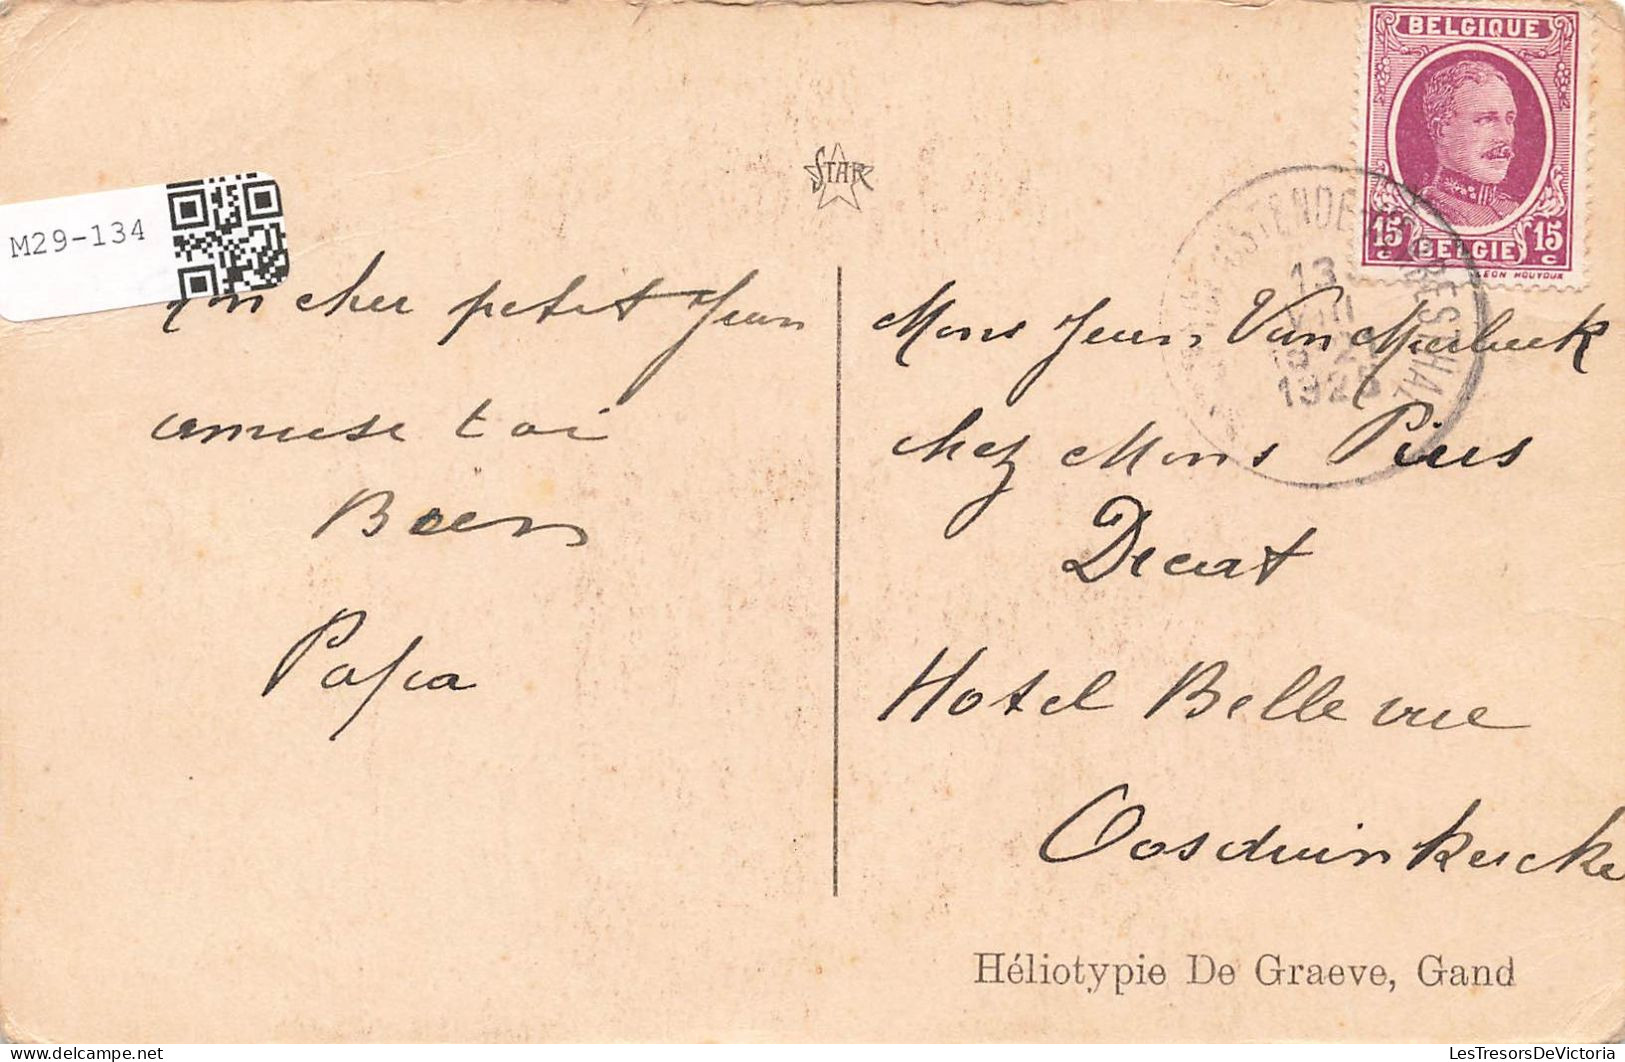 BELGIQUE
15 c BELGIE 15 c
LEON HOUYOUX
STAR
M29-134
OSTENDE
13
VIII
1925
Mon cher petit Jean
amuse toi
Bien
Papa
Mons Jean Van
chez Mons Pius
Decat
Hotel Belle vue
Oosduinkercke
Héliotypie De Graeve, Gand
LesTresorsDeVictoria